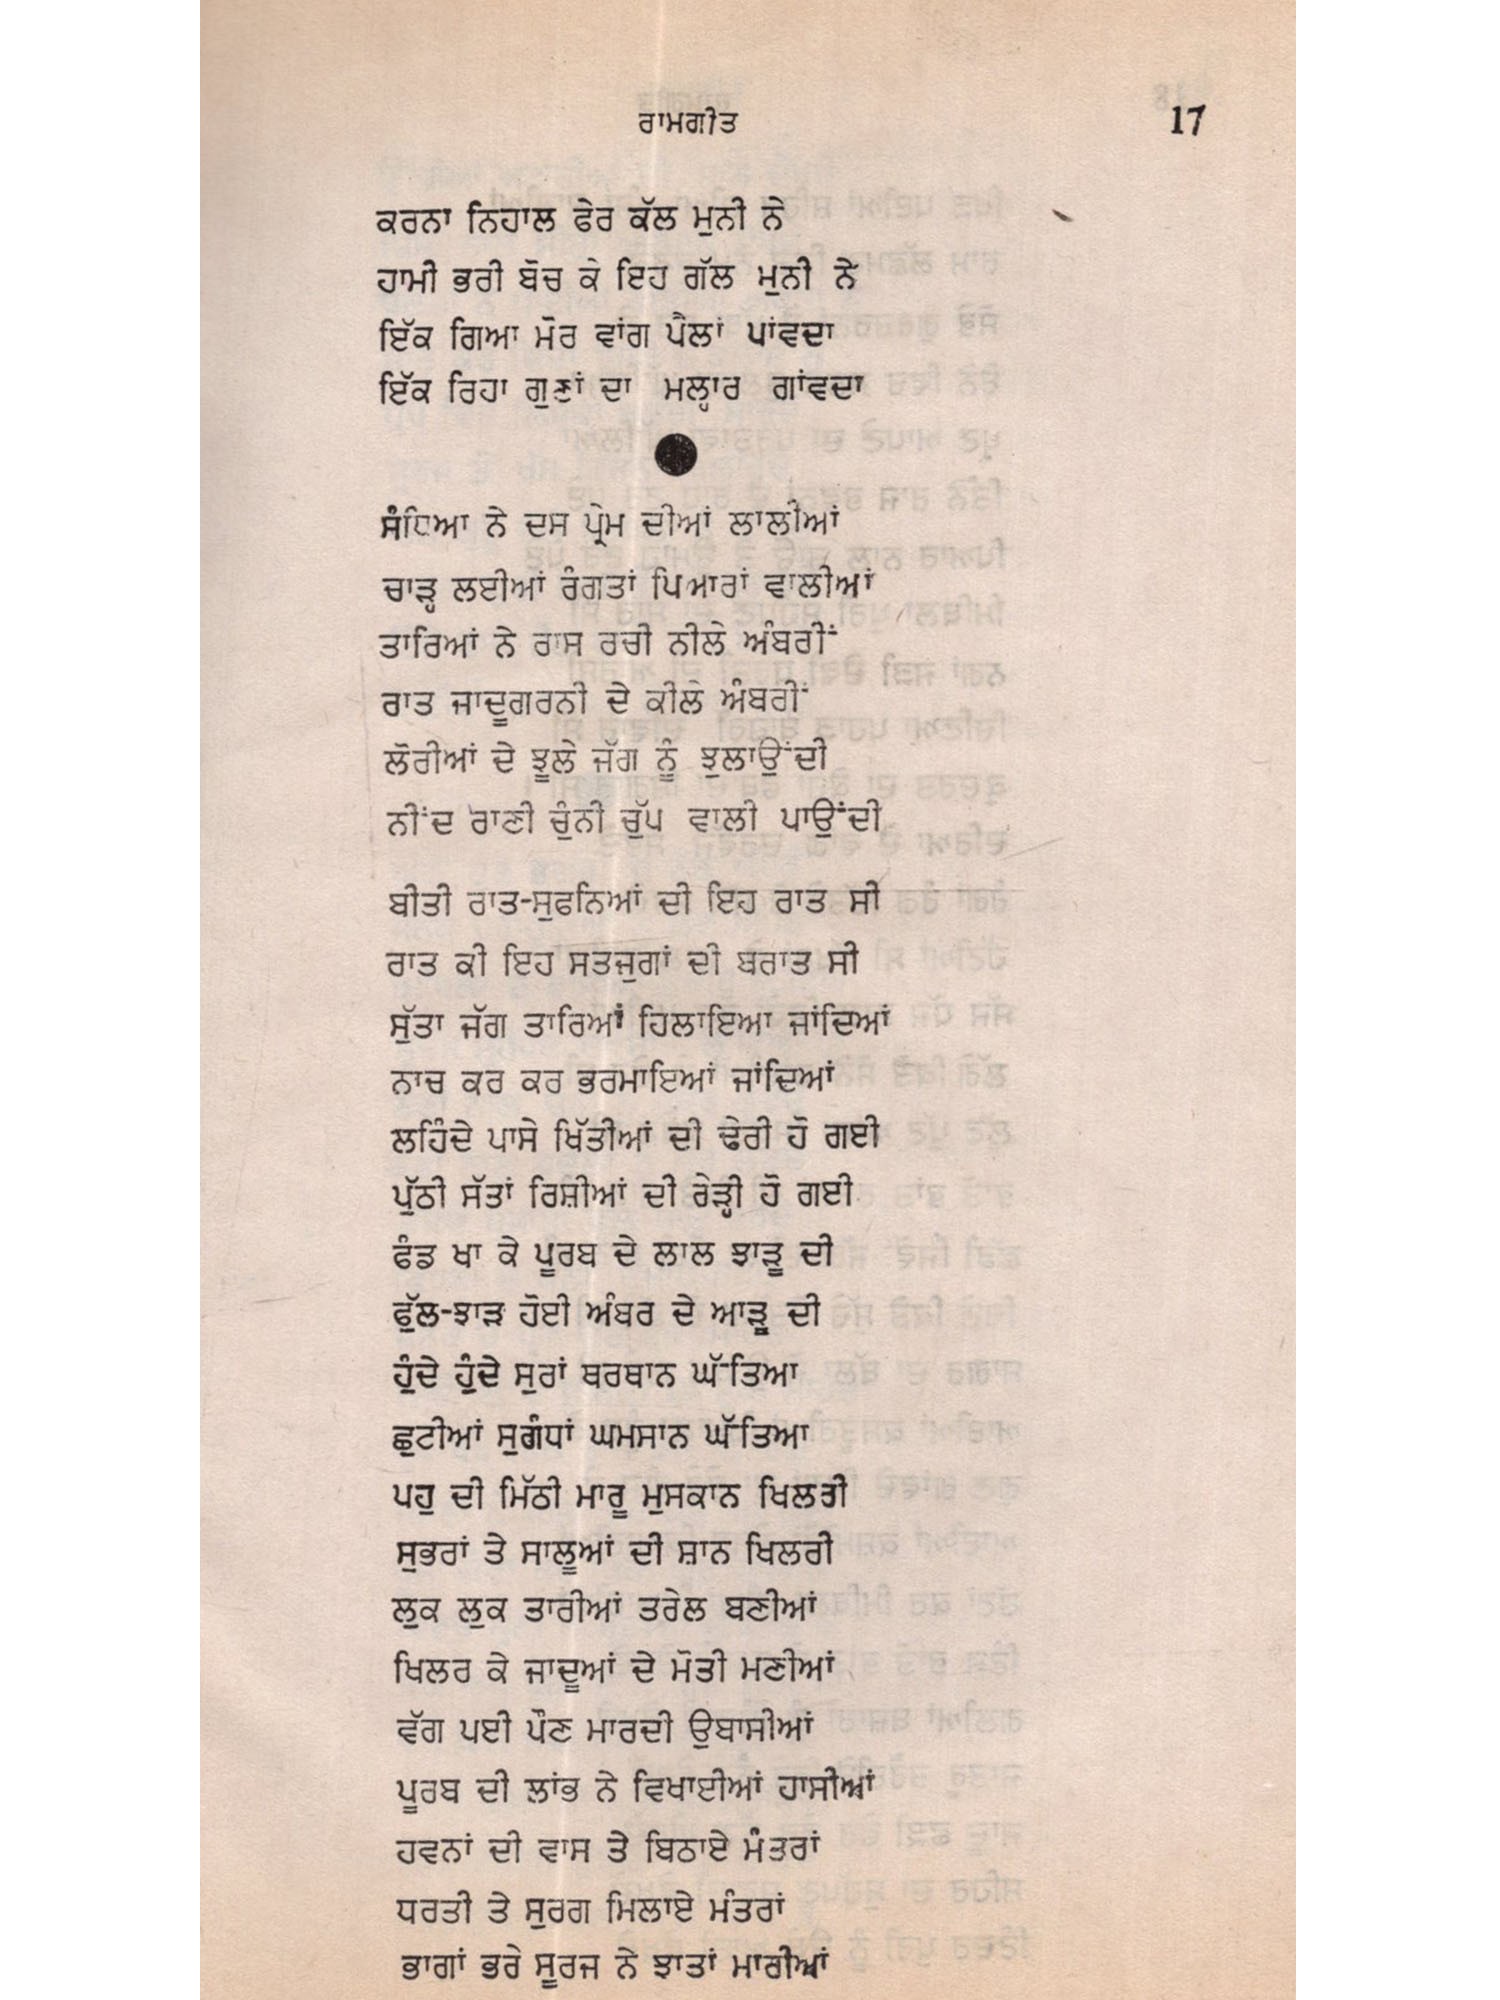 ਰਾਮਗੀਤ 17
ਕਰਨਾ ਨਿਹਾਲ ਫੇਰ ਕੱਲ ਮੁਨੀ ਨੇ
ਹਾਮੀ ਭਰੀ ਬੋਚ ਕੇ ਇਹ ਗੱਲ ਮੁਨੀ ਨੇ
ਇੱਕ ਗਿਆ ਮੋਰ ਵਾਂਗ ਪੈਲਾਂ ਪਾਂਵਦਾ
ਇੱਕ ਰਿਹਾ ਗੁਣਾਂ ਦਾ ਮਲ੍ਹਾਰ ਗਾਂਵਦਾ
●
ਸੰਧਿਆ ਨੇ ਦਸ ਪ੍ਰੇਮ ਦੀਆਂ ਲਾਲੀਆਂ
ਚਾੜ੍ਹ ਲਈਆਂ ਰੰਗਤਾਂ ਪਿਆਰਾਂ ਵਾਲੀਆਂ
ਤਾਰਿਆਂ ਨੇ ਰਾਸ ਰਚੀ ਨੀਲੇ ਅੰਬਰੀਂ
ਰਾਤ ਜਾਦੂਗਰਨੀ ਦੇ ਕੀਲੇ ਅੰਬਰੀਂ
ਲੋਰੀਆਂ ਦੇ ਝੂਲੇ ਜੱਗ ਨੂੰ ਝੁਲਾਉਂਦੀ
ਨੀਂਦ ਰਾਣੀ ਚੁੰਨੀ ਚੁੱਪ ਵਾਲੀ ਪਾਉਂਦੀ
ਬੀਤੀ ਰਾਤ-ਸੁਫਨਿਆਂ ਦੀ ਇਹ ਰਾਤ ਸੀ
ਰਾਤ ਕੀ ਇਹ ਸਤਜੁਗਾਂ ਦੀ ਬਰਾਤ ਸੀ
ਸੁੱਤਾ ਜੱਗ ਤਾਰਿਆਂ ਹਿਲਾਇਆ ਜਾਂਦਿਆਂ
ਨਾਚ ਕਰ ਕਰ ਭਰਮਾਇਆਂ ਜਾਂਦਿਆਂ
ਲਹਿੰਦੇ ਪਾਸੇ ਖਿੱਤੀਆਂ ਦੀ ਢੇਰੀ ਹੋ ਗਈ
ਪੁੱਠੀ ਸੱਤਾਂ ਰਿਸ਼ੀਆਂ ਦੀ ਰੇੜ੍ਹੀ ਹੋ ਗਈ
ਫੰਡ ਖਾ ਕੇ ਪੂਰਬ ਦੇ ਲਾਲ ਝਾੜੂ ਦੀ
ਫੁੱਲ-ਝਾੜ ਹੋਈ ਅੰਬਰ ਦੇ ਆੜੂ ਦੀ
ਹੁੰਦੇ ਹੁੰਦੇ ਸੁਰਾਂ ਥਰਥਾਨ ਘੱਤਿਆ
ਛੁਟੀਆਂ ਸੁਗੰਧਾਂ ਘਮਸਾਨ ਘੱਤਿਆ
ਪਹੁ ਦੀ ਮਿੱਠੀ ਮਾਰੂ ਮੁਸਕਾਨ ਖਿਲਰੀ
ਸੁਭਰਾਂ ਤੇ ਸਾਲੂਆਂ ਦੀ ਸ਼ਾਨ ਖਿਲਰੀ
ਲੁਕ ਲੁਕ ਤਾਰੀਆਂ ਤਰੇਲ ਬਣੀਆਂ
ਖਿਲਰ ਕੇ ਜਾਦੂਆਂ ਦੇ ਮੋਤੀ ਮਣੀਆਂ
ਵੱਗ ਪਈ ਪੌਣ ਮਾਰਦੀ ਉਬਾਸੀਆਂ
ਪੂਰਬ ਦੀ ਲਾਂਭ ਨੇ ਵਿਖਾਈਆਂ ਹਾਸੀਆਂ
ਹਵਨਾਂ ਦੀ ਵਾਸ ਤੇ ਬਿਠਾਏ ਮੰਤਰਾਂ
ਧਰਤੀ ਤੇ ਸੁਰਗ ਮਿਲਾਏ ਮੰਤਰਾਂ
ਭਾਗਾਂ ਭਰੇ ਸੂਰਜ ਨੇ ਝਾਤਾਂ ਮਾਰੀਆਂ